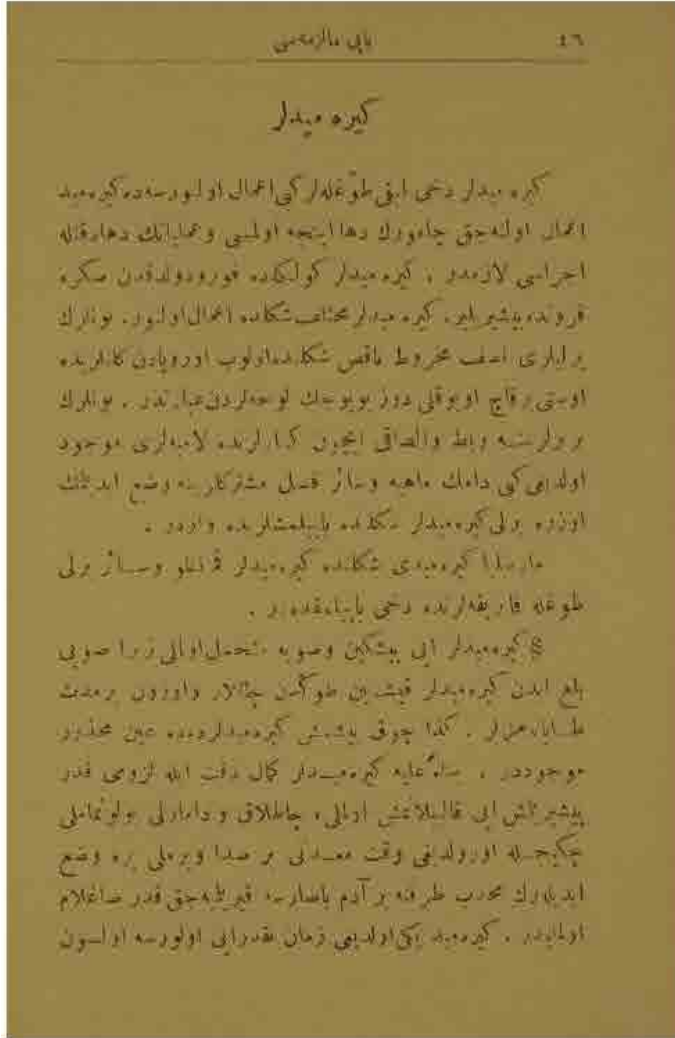 ٤٦ ياپی مالزمه‌سی
كیره‌میدلر
كیره میدلر دخی ایقی طوغله‌لر كبی اعمال اولنورسه‌ده كیره‌مید
اعمال اولنه‌جق چامورك دها اینجه اولمسی و عملیاتك دها دقتله
اجراسی لازمدر . كیره‌میدلر كولكده قورودولدقدن صكره
فرونده پیشیریلیر. كیره میدلر مختلف شكلده اعمال اولنور. بونلرك
یرلیلری نصف مخروط ناقص شكلنده اولوب اوروپادن كلنلریده
اوستی برقاچ اویوقلی دوز بویوجك لوحه‌لردن عبارتدر . بونلرك
بربرلرینه ربط والصاقی ایچون كنارلرنده لامبه‌لری موجود
اولدیغی كبی دامك ماهیه وسائر فصل مشتركلرینه وضع ایدیلمك
اوزره یرلی كیره‌میدلر شكلنده یاپیلمشلریده واردر .
مارسیلیا كیره‌میدی شكلنده كیره‌میدلر وسائر یرلی
طوغله فابریقه‌لرنده دخی یاپیلمقده‌در .
§ كیره‌میدلر ایی پیشكین وصویه متحمل اولملی زیرا صویی
بلع ایدن كیره‌میدلر قیشین طوكدن چاتلار واوزون برمدت
طیانه‌مزلر . كذا چوق پیشمش كیره‌میدلرده‌ده عین محذور
موجوددر . بناءً علیه كیره‌میدلر كمال دقت ایله لزومی قدر
پیشیرلمش ایی قالبلانمش اولملی، چاطلاق و دامارلی بولونماملی
چكیجله اورولدیغی وقت معدنی بر صدا ویرملی یره وضع
ایدیله‌رك محدب طرفنه بر آدم باصارسه قیریلمیه‌جق قدر صاغلام
اولمالیدر . كیره‌مید یكی اولدیغی زمان نقدر ایی اولورسه اولسون